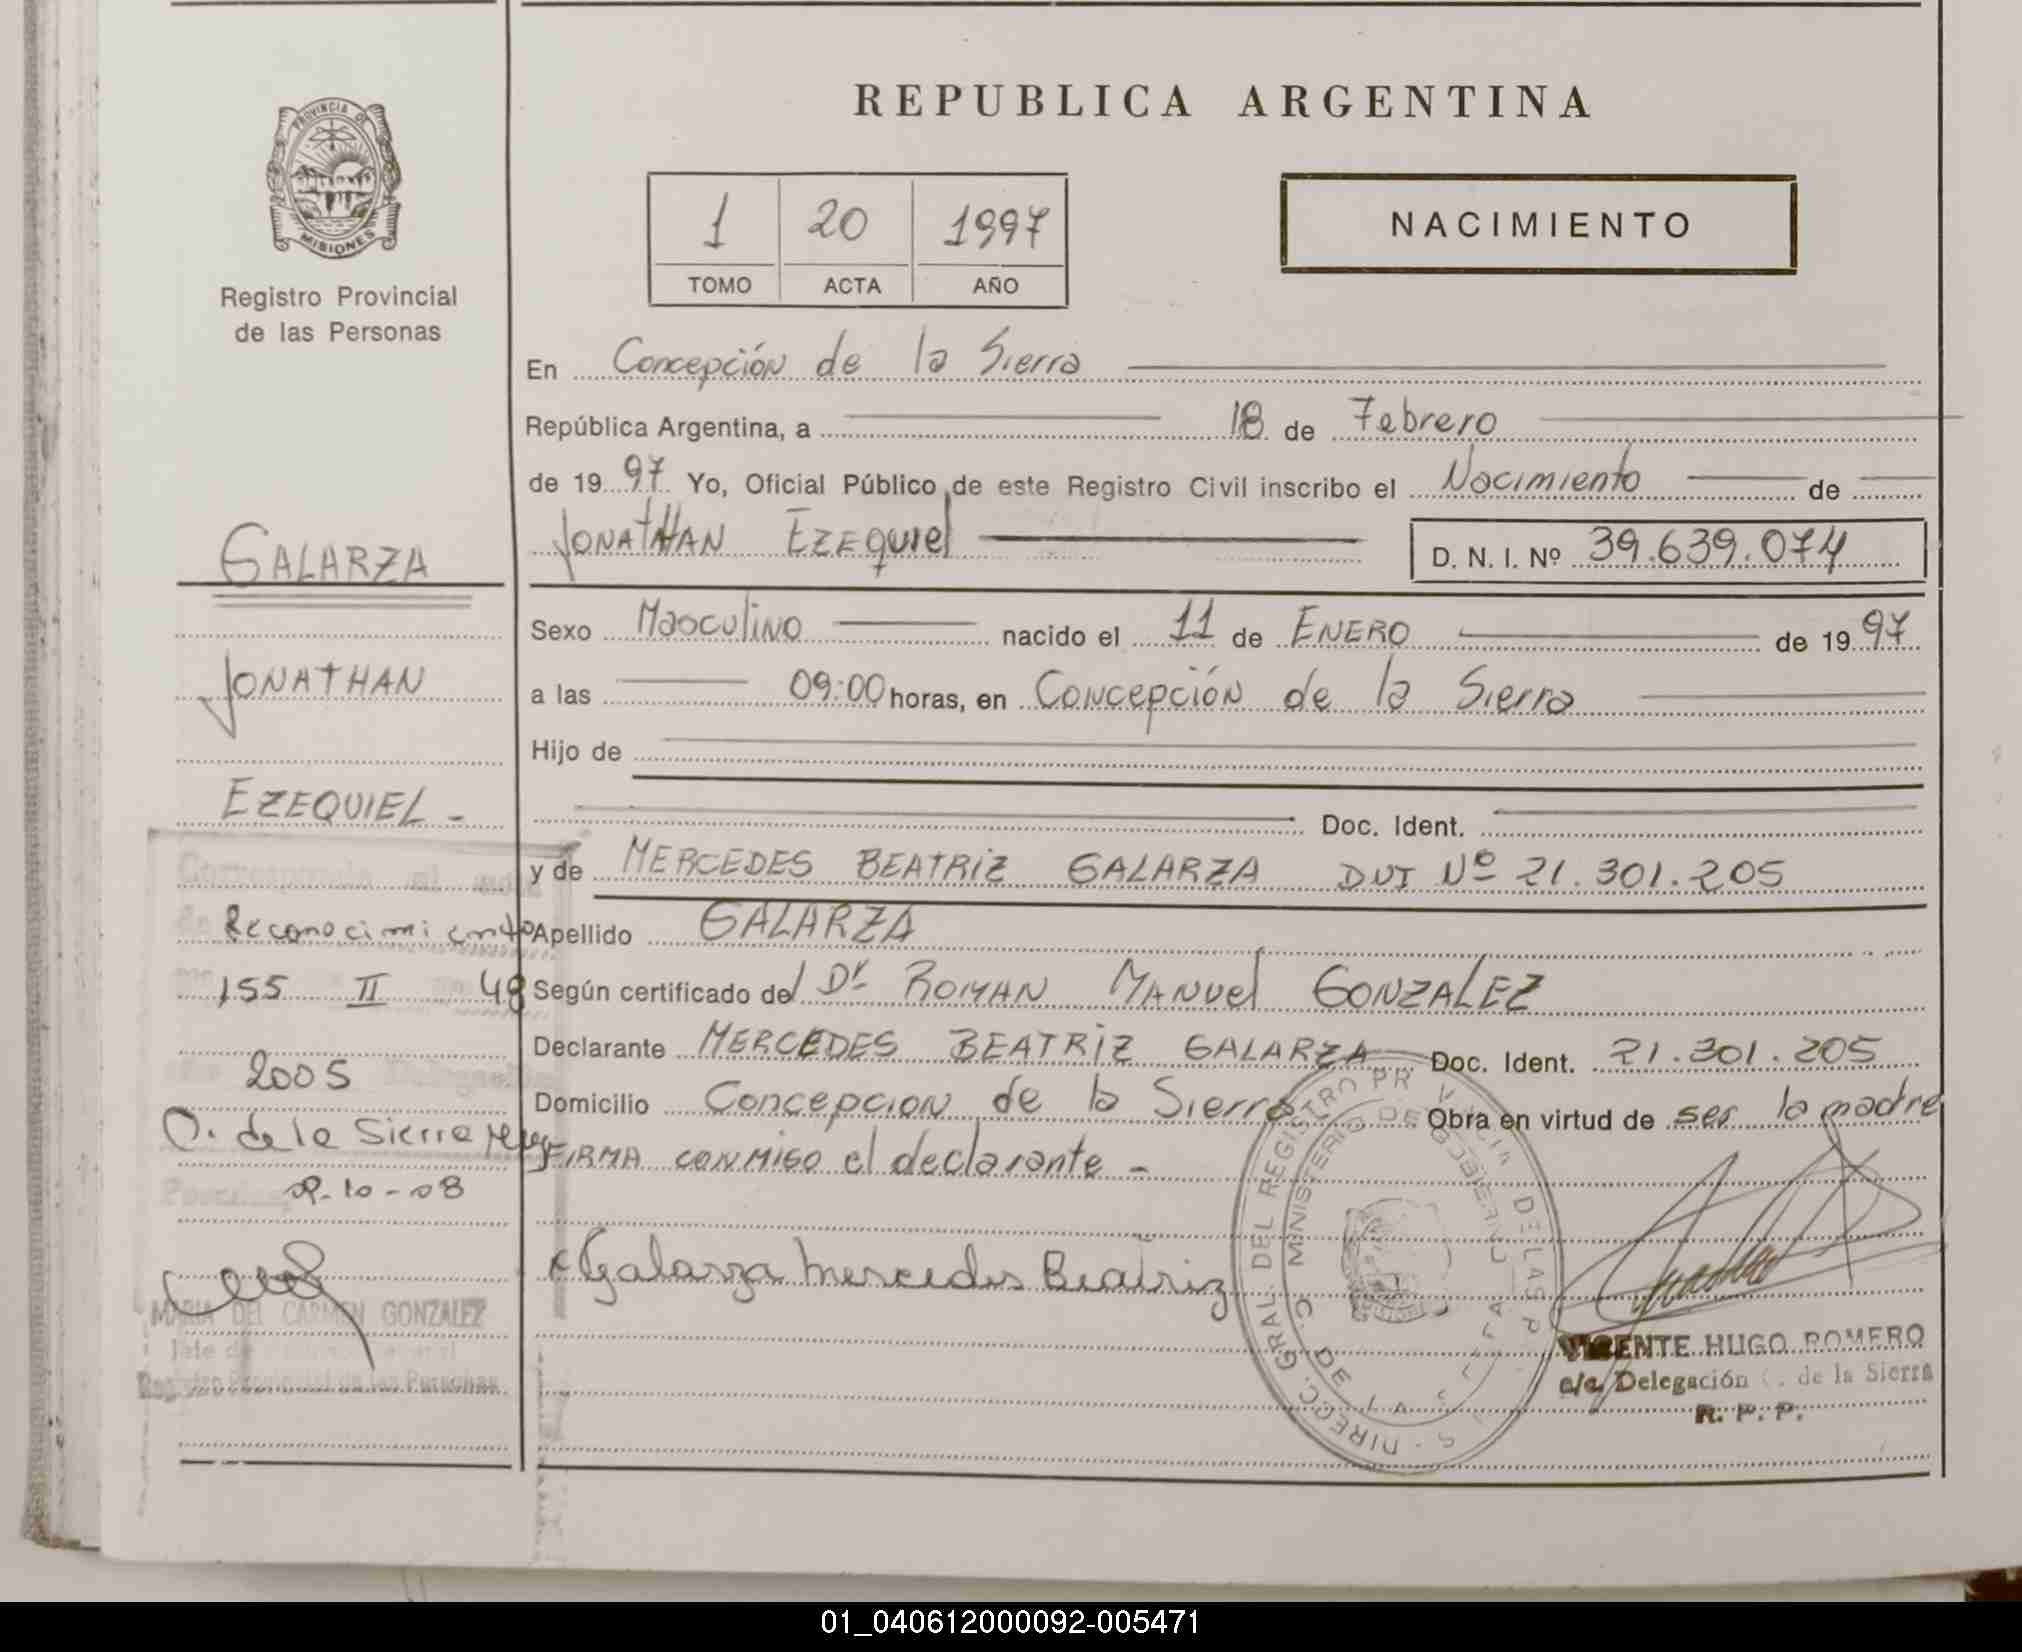 PROVINCIA DE
MISIONES
Registro Provincial
de las Personas
REPUBLICA ARGENTINA
1 20 1997
TOMO ACTA AÑO
NACIMIENTO
En Concepción de la Sierra
República Argentina, a 18 de Febrero
de 19 97 Yo, Oficial Público de este Registro Civil inscribo el Nacimiento de
JONATHAN EZEQUIEL D. N. I. Nº 39.639.074
Sexo Masculino nacido el 11 de ENERO de 19 97
a las 09:00 horas, en Concepción de la Sierra
Hijo de
Doc. Ident.
y de MERCEDES BEATRIZ GALARZA DNI Nº 21.301.205
Apellido GALARZA
Según certificado del Dr ROMAN MANUEL GONZALEZ
Declarante MERCEDES BEATRIZ GALARZA Doc. Ident. 21.301.205
Domicilio Concepcion de la Sierra Obra en virtud de ser la madre
FIRMA CONMIGO el declarante -
Galarza Mercedes Beatriz
DIRECC. GRAL. DEL REGISTRO PR VINCIAL DE LAS P
MINISTERIO DE GOBIERNO
VICENTE HUGO ROMERO
a/c. Delegación C. de la Sierra
R. P. P.
GALARZA
JONATHAN
EZEQUIEL -
Corresponde al acta
Reconocimiento
155 II 48
2005
Delegación
C. de la Sierra
-10-08
MARIA DEL CARMEN GONZALEZ
Registro Provincial de las Personas
01_040612000092-005471